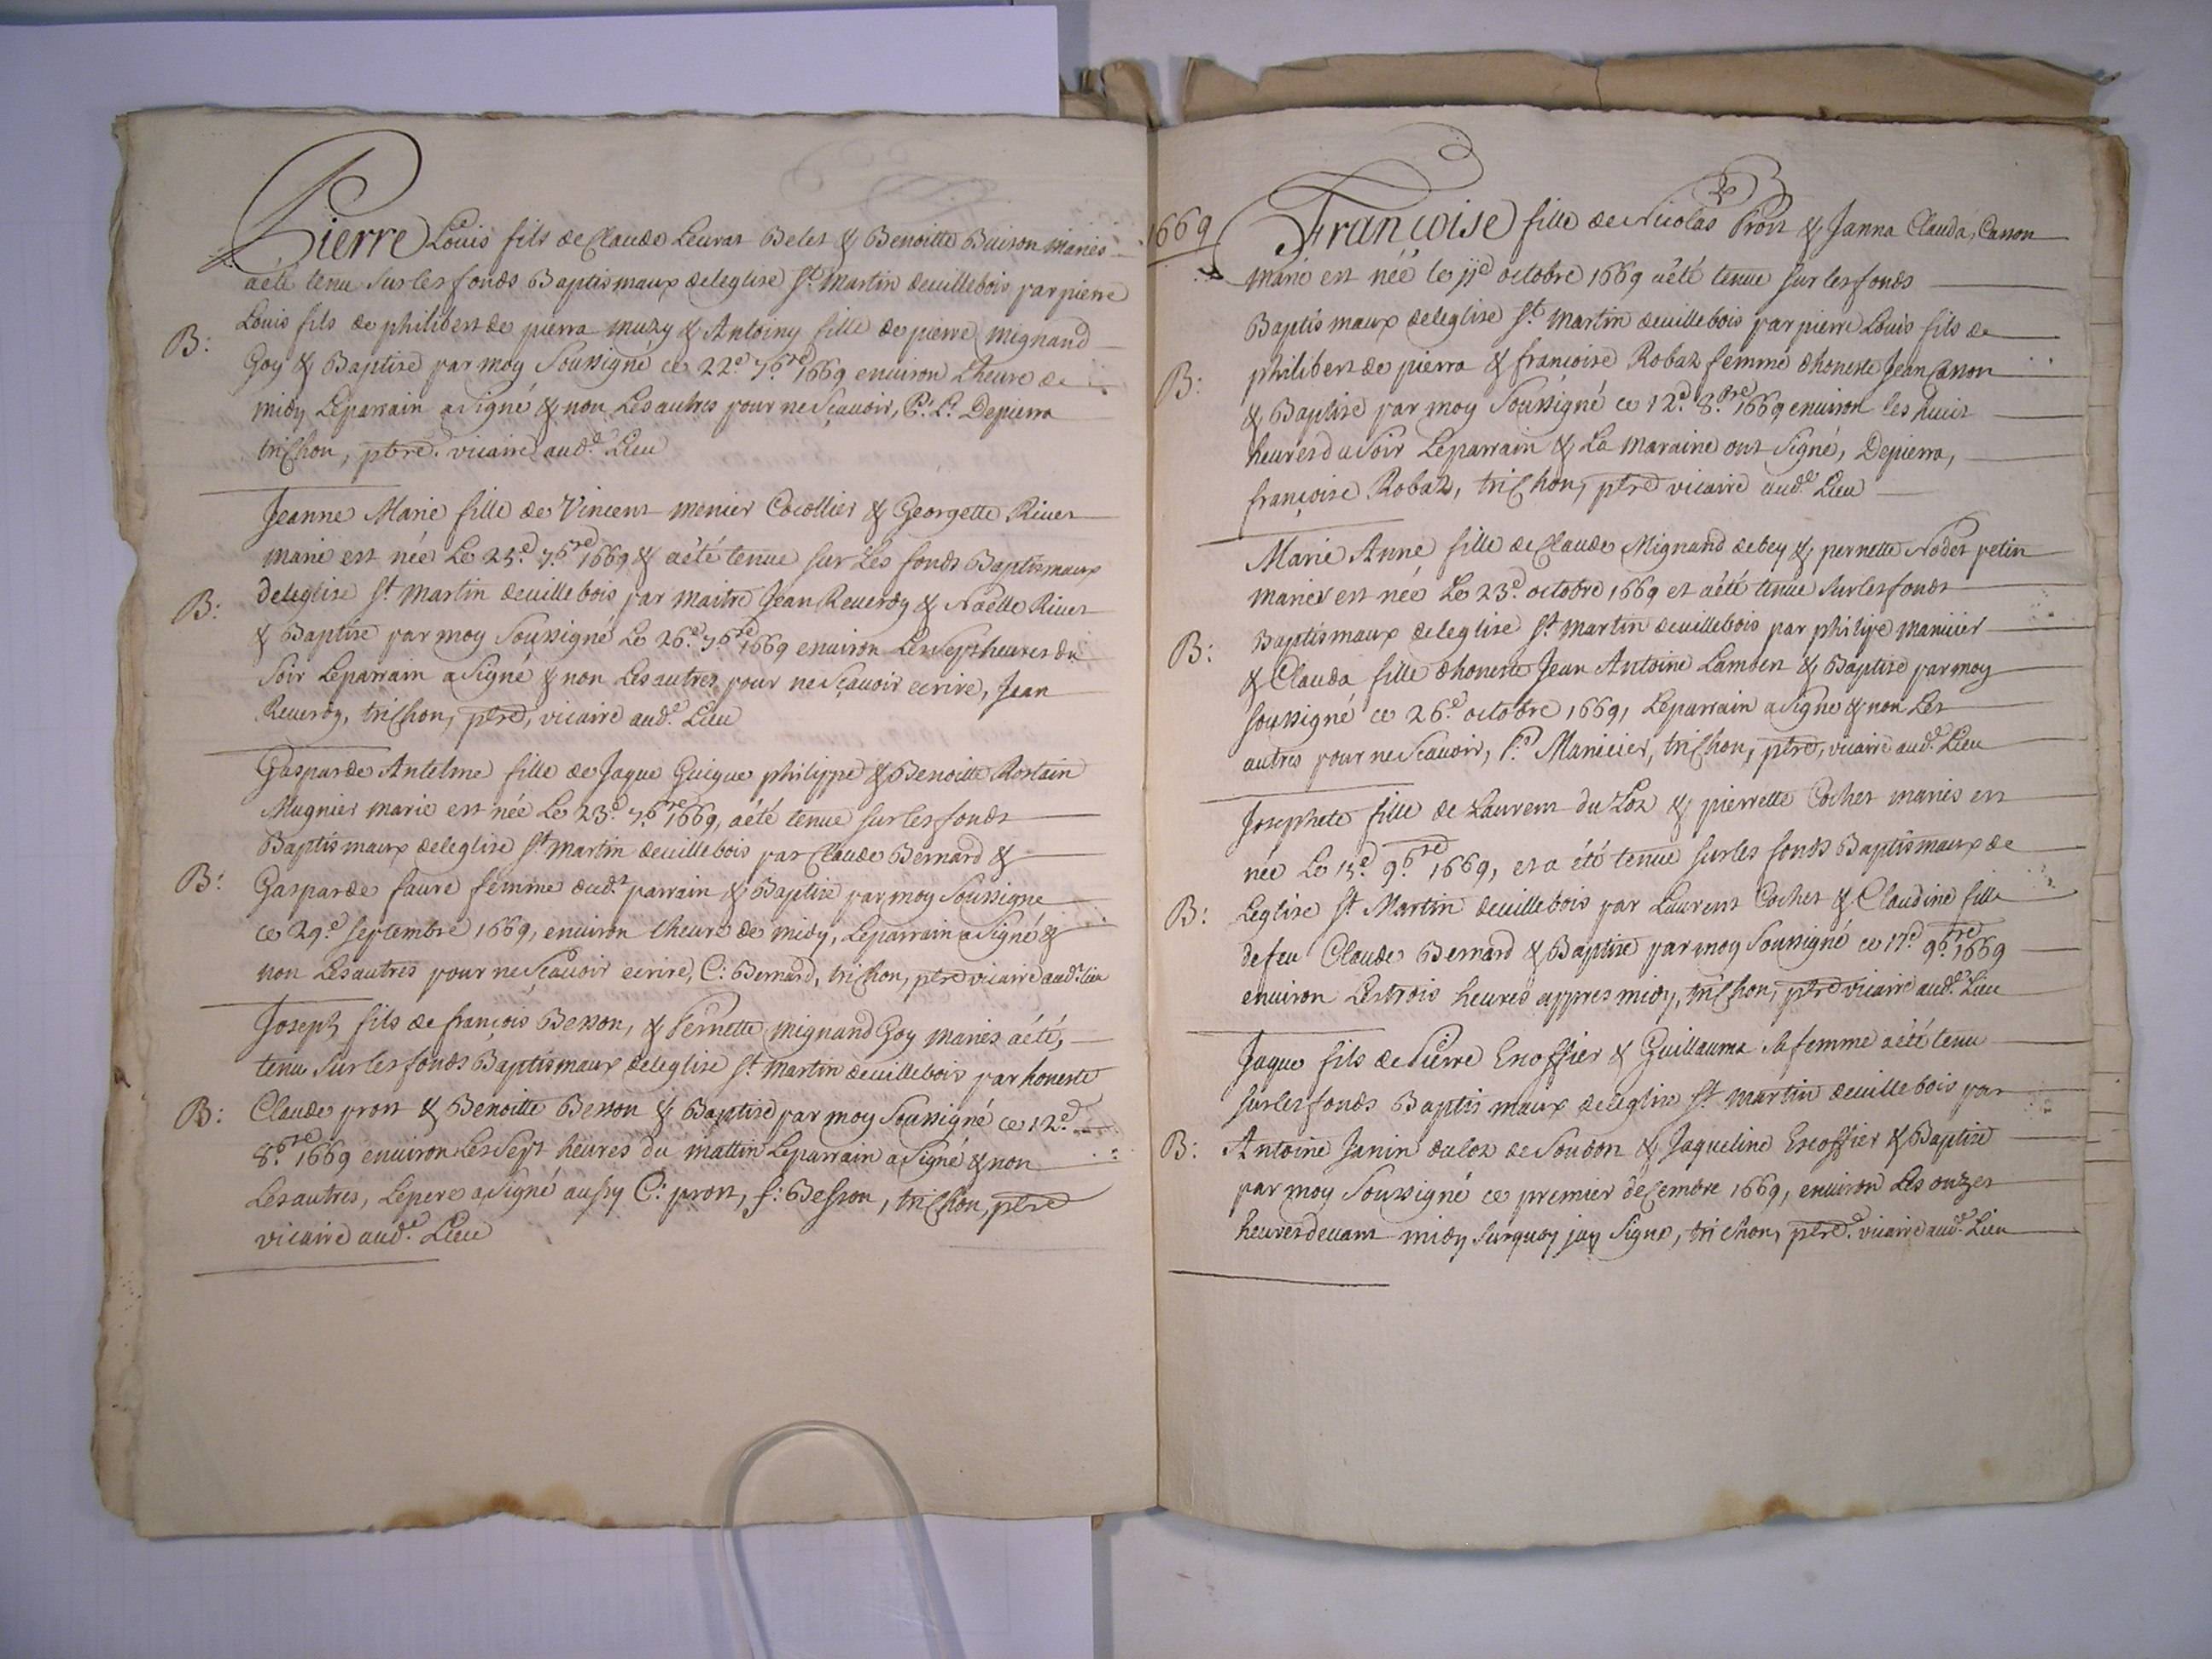 Pierre Louis fils de Claude Leurat Belet & Benoitte Buison mariés
aété tenu sur les fonds Baptismaux deleglise St. Martin deuillebois par pierre
B: Louis fils de philibert de pierra muzy & Antoiny fille de pierre mignand
Goy & Baptise par moy Soussigné ce 22e. 7bre 1669 enuiron Lheure de
midy Leparrain a signé & non Les autres pour ne Sçauoir, P: L: Depierra
trichon, ptre. vicaire aud. Lieu
Jeanne Marie fille de Vincent menier Cocollier & Georgette Riuet
marie est née Le 25e. 7bre 1669 & aété tenue sur Les fonds Baptismaux
B: deleglise St. Martin deuillebois par maitre Jean Reuerdy & Noëlle Riuet
& Baptise par moy Soussigné Le 26e. 7bre 1669 enuiron Les Sept heures du
Soir Leparrain a signé & non Les autres pour ne sçauoir ecrire, Jean
Reuerdy, trichon, ptre, vicaire aud. Lieu
Gasparde Antelme fille de Jaque Guigue philippe & Benoitte Rostain
Mugnier marie est née Le 23e. 7bre 1669, aété tenue sur les fonds
Baptismaux deleglise St. Martin deuillebois par Claude Bernard &
B: Gasparde faure femme dudt. parrain & Baptise par moy Soussigne
ce 29e. Septembre 1669, enuiron Lheure de midy, Leparrain a Signé &
non Les autres pour ne Sçauoir ecrire, C: Bernard, trichon, ptre vicaire aud. lieu
Joseph fils de françois Besson, & Pernette mignand Goy mariés aété,
tenu sur les fonds Baptismaux deleglise St. Martin deuillebois par honeste
B: Claude prost & Benoitte Besson & Baptise par moy Soussigné ce 12e.
8bre 1669 enuiron Les Sept heures du mattin Leparrain a Signé & non
Les autres, Lepere a signé aussy C: prost, f: Besson, trichon, ptre
vicaire aud. Lieu
1669 Françoise fille de Nicolas Prost & Janna Clauda, Canon
marié est née le 11e octobre 1669 aété tenue sur les fonds
Baptismaux deleglise St. Martin deuillebois par pierre Louis fils de
B: philibert de pierra & francoise Robaz femme dhoneste Jean Canon
& Baptise par moy Soussigné ce 12e. 8bre 1669 enuiron les huit
heures du Soir Leparrain & La maraine ont Signé, Depierra,
françoise Robaz, trichon, ptre vicaire aud. Lieu
Marie Anne fille de Claude Mignand debey & pernette Nodet petin
mariés est née Le 23e. octobre 1669 et aété tenue sur les fonds
B: Baptismaux deleglise St. Martin deuillebois par philipe manicier
& Clauda fille dhoneste Jean Antoine Lambert & Baptise par moy
soussigné ce 26e. octobre 1669, Leparrain a signe & non Les
autres pour ne Scauoir, P. Manicier, trichon, ptre, vicaire aud. Lieu
Josephete fille de Laurent du Loz & pierrette Cochet mariés est
née Le 15e. 9bre 1669, et a été tenue sur les fonds Baptismaux de
B: Leglise St. Martin deuillebois par Laurent Cochet & Claudine fille
de feu Claude Bernard & Baptise par moy Soussigné ce 17e. 9bre 1669
enuiron Les trois heures appres midy, trichon, ptre vicaire aud. Lieu
Jaque fils de Pierre Escoffier & Guillauma Sa femme aété tenu
sur les fonds Baptismaux deleglise St. Martin deuillebois par
B: Antoine Janin duloz de Soudon & Jaqueline Escoffier & Baptise
par moy Soussigné ce premier decembre 1669, enuiron Les onzes
heures deuant midy surquoy jay Signe, trichon, ptre. vicaire aud. Lieu